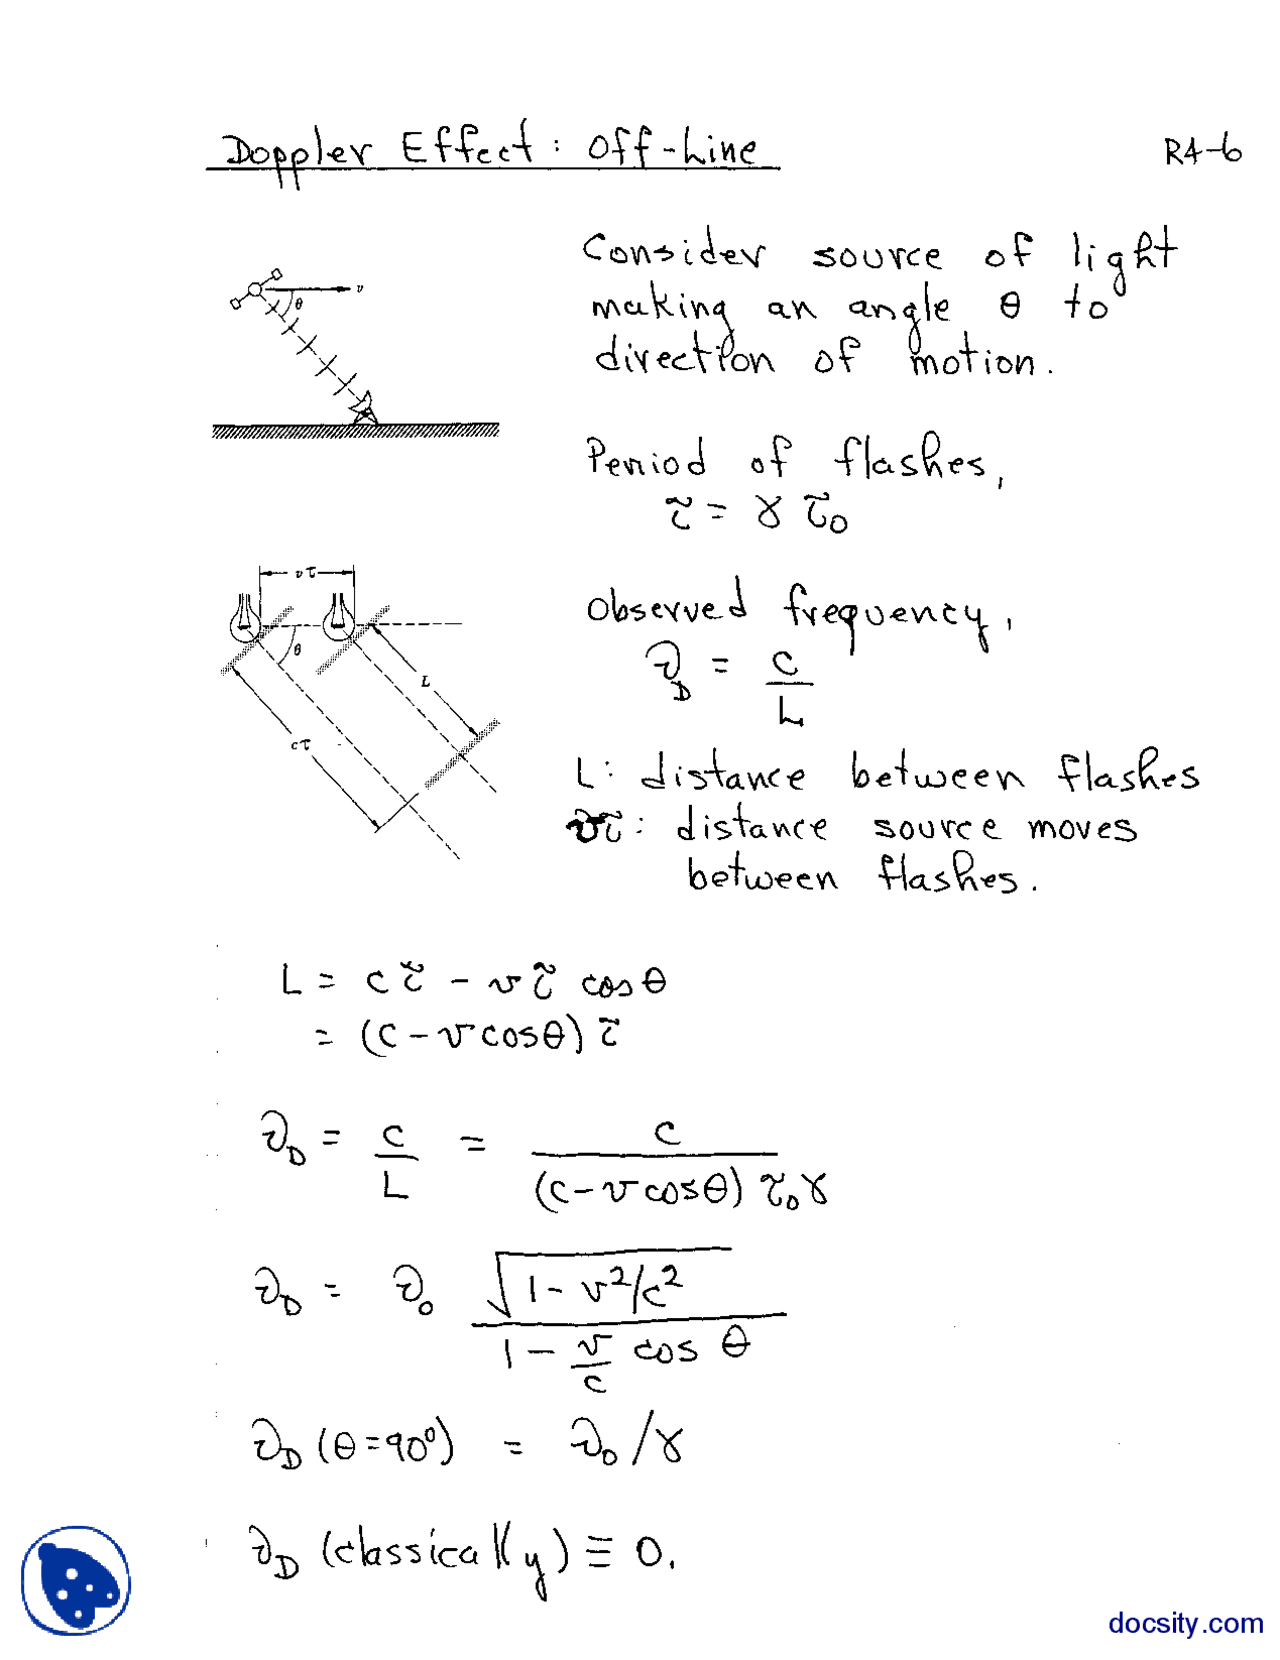 Doppler Effect: Off-Line
R4-6
Consider source of light
making an angle θ to
direction of motion.
v
θ
Period of flashes,
τ = γ τ₀
Observed frequency,
ν_D = c/L
vτ
θ
L
cτ
L: distance between flashes
vτ: distance source moves
between flashes.
L = cτ - vτ cosθ
= (c - v cosθ) τ
ν_D = c/L = c/((c - v cosθ) τ₀γ)
ν_D = ν₀ √(1 - v²/c²)/(1 - v/c cos θ)
ν_D (θ=90°) = ν₀/γ
ν_D (classically) ≡ 0.
docsity.com